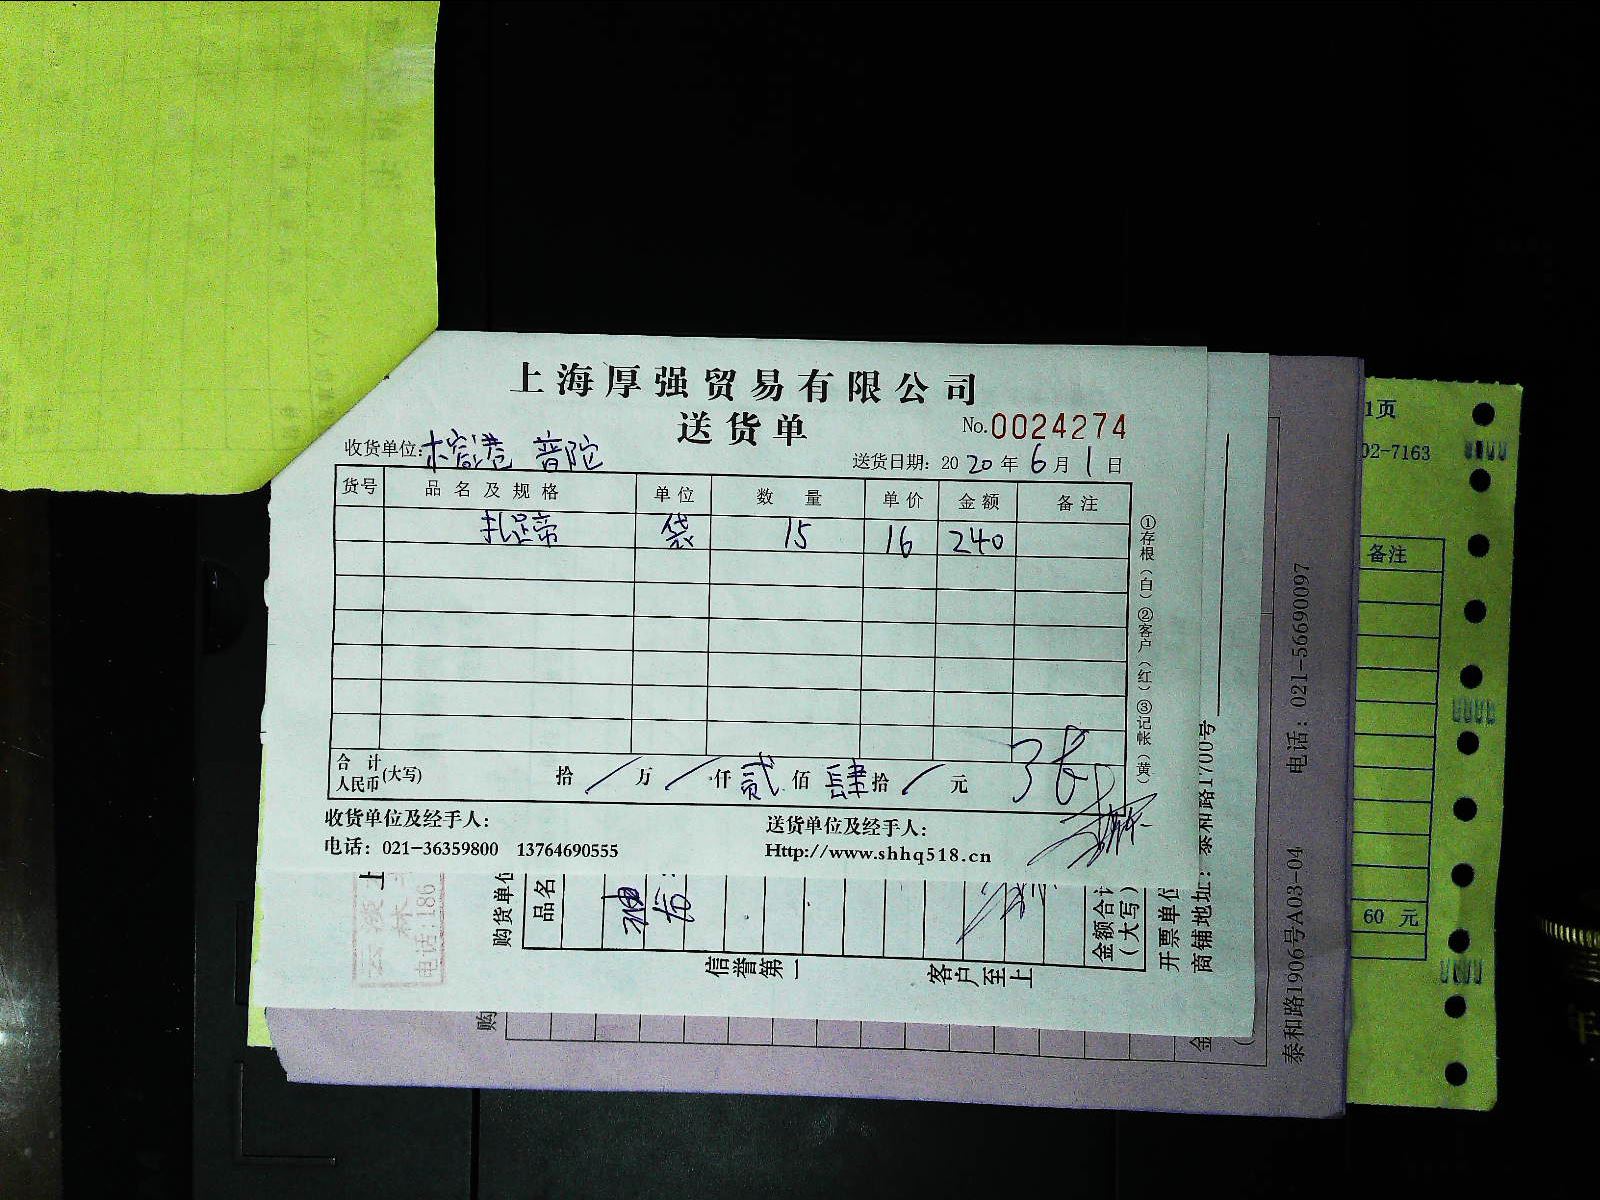 上海厚强贸易有限公司
送货单
No.0024274
收货单位: 普陀
送货日期: 2020年6月1日
货号 品名及规格 单位 数量 单价 金额 备注
袋 15 16 240
合计人民币(大写) 拾/万/仟贰佰肆拾/元
收货单位及经手人:
送货单位及经手人:
电话: 021-36359800 13764690555
Http://www.shhq518.cn
①存根(白)②客户(红)③记帐(黄)
电话:186
购货单位
品名
信誉第一
客户至上
金额合计
(大写)
开票单位
商铺地址: 泰和路1700号
购
金
泰和路1906号A03-04 电话: 021-56690097
1页
02-7163
备注
60 元